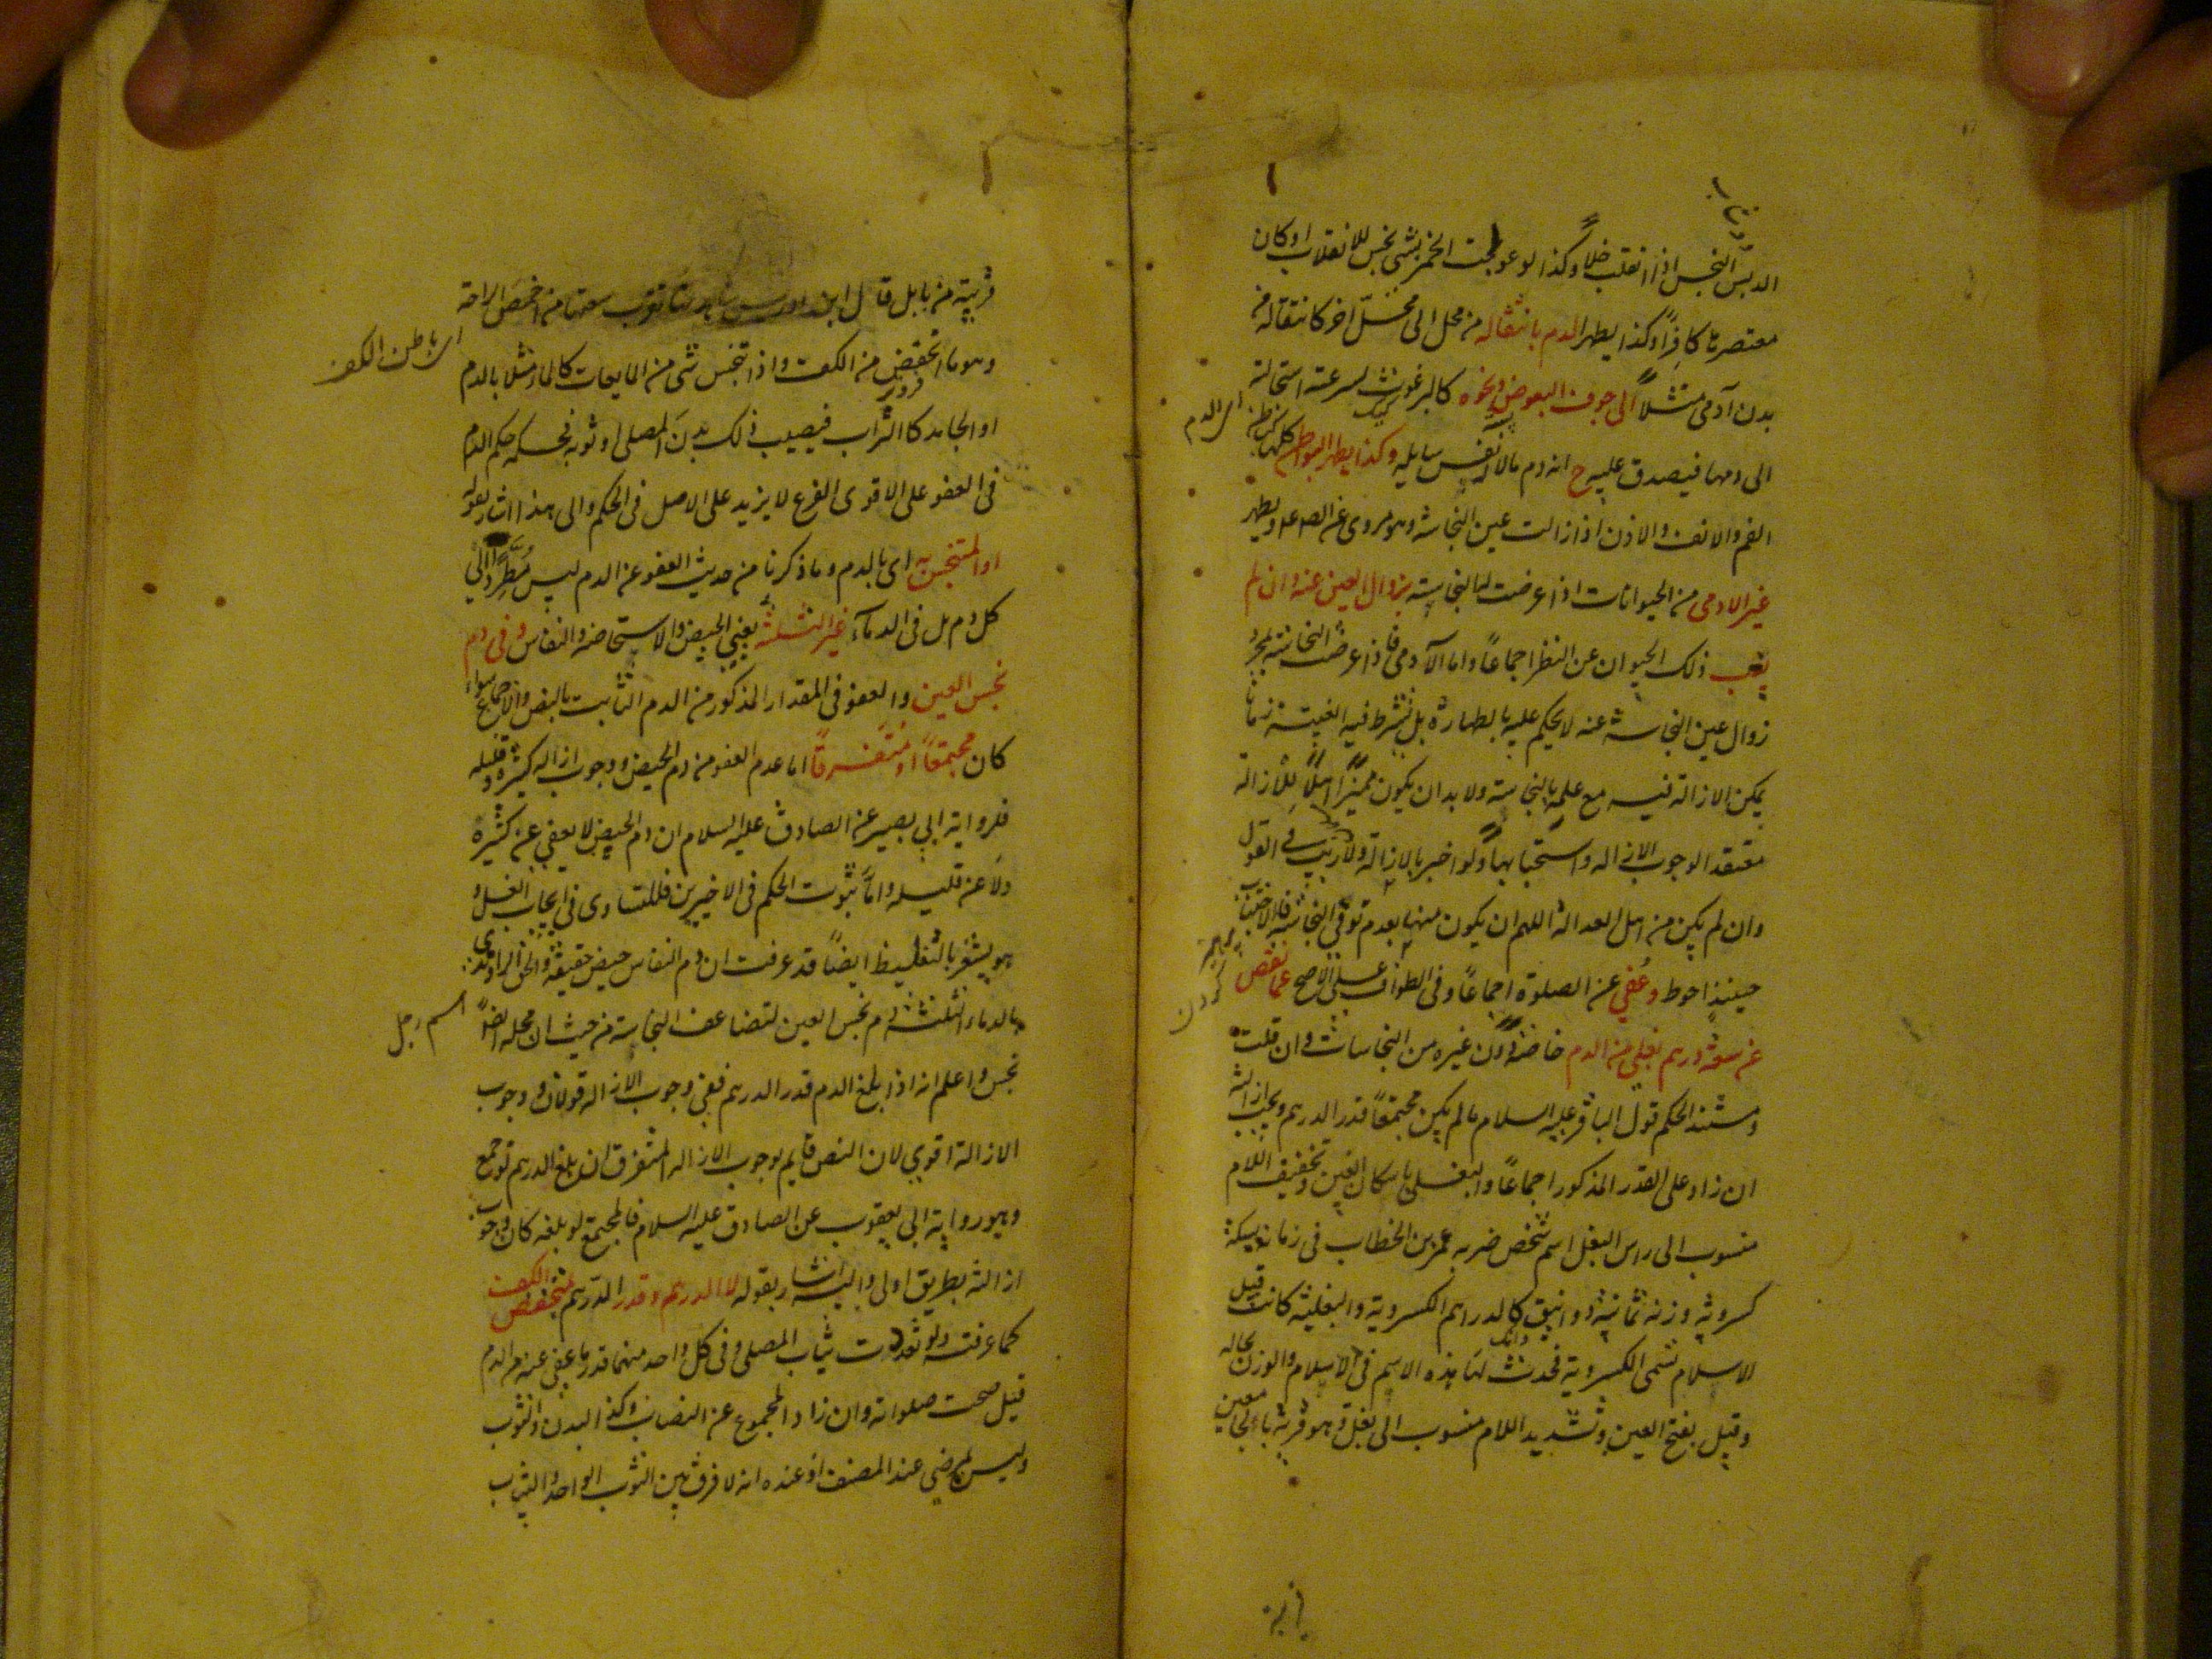 الدبس النجس اذا انقلب خلاً وكذا لو عولجت الخمر بشئ نجس للانقلاب او كان
معتصرها كافراً وكذا يطهر الدم بانتقاله من محل الى محلّ اخر كانتقاله من
بدن آدمى مثلاً الى جوف البعوض ونحوه كالبرغوث لسرعة استحالة
الى دمها فيصدق عليه ح انه دم مالا نفس سايله وكذا يطهر البواطن كلها
اى الدم
الفم والانف والاذن اذا زالت عين النجاسة وهو مروى عن الصـ ع ويطهر
غير الادمى من الحيوانات اذا عرضت لها النجاسته بزوال العين عنه وان لم
يغب ذلك الحيوان عن النظر اجماعاً واما الآدمى فاذا عرضت النجاسته لمجرد
زوال عين النجاسة عنه لا يحكم عليه بالطهارة بل نشرط فيه الغيبة زماناً
يمكن الازالة فيه مع علمه بالنجاسته ولا بد ان يكون مميزاً اهلاً للازالة
معتقد الوجوب الازاله واستحبابها ولو اخبر بالازالة ولا ريب فى القول
وان لم يكن من اهل العدالة اللهم ان يكون منها بعدم توقى النجاسة فالاجتناب
حينئذٍ احوط وعُفي عن الصلوة اجماعاً وفى الطواف على الاصح عما نقص
عن سعة درهم بغلى من الدم خاصة دون غيره من النجاسات وان قلت
ومستند الحكم قول الباقر عليه السلام مالم يكن مجتمعاً قدر الدرهم ويجب ازالته
ان زاد على القدر المذكور اجماعاً والبغلى باسكان الغين وتخفيف اللام
منسوب الى راس البغل اسم شخص ضربه عمر بن الخطاب فى زمانه بسكة
كسروية وزنه ثمانية دوانيق كالدراهم الكسروية والبغلية كانت قبل
دانك
الاسلام تسمى الكسروية فحدث لها هذه الاسم فى الاسلام والوزن بحاله
وقيل بفتح الغين وتشديد اللام منسوب الى بغلة وهو قرية بالجامعين
قريبة من بابل قال ابن ادريس شاهدتها تقرب سعتها من اخمص الراحة
اى باطن الكف
وهو ما انخفض من الكف واذا تنجس شئ من المايعات كالماء مثلا بالدم
او الجامد كالتراب فيصيب ذلك بدن المصلى او ثوبه فحكمه حكم الدم
فى العفو على الاقوى الفرع لا يزيد على الاصل فى الحكم والى هذا اشار بقوله
او المتنجس به اى بالدم وما ذكرنا من حديث العفو عن الدم ليس مُطَّرِداً فى
كل دم بل فى الدمآء غير الثلثة يعنى الحيض والاستحاضه والنفاس وفى دم
نجس العين والعفو فى المقدار المذكور من الدم الثابت بالنص والاجماع سواء
كان مجتمعاً او متفرقاً اما عدم العفو من دم الحيض ووجوب ازالة كثيره وقليله
فلرواية ابى بصير عن الصادق عليه السلام ان دم الحيض لا يعفى عن كثيره
ولا عن قليله واما ثبوت الحكم فى الاخيرين فللتساوى فى ايجاب الغسل و
هو يشعر بالتغليظ ايضاً قد عرفت ان دم النفاس حيض حقيقة والحق الراوندى
اسم رجل
بالدماء الثلثة دم نجس العين لتضاعف النجاسته من حيث ان محله ايضاً
نجس واعلم انه اذا بلغ الدم قدر الدرهم ففى وجوب الازاله قولان ووجوب
الازالة اقوى لان النص قايم بوجوب الازاله المتفرق ان بلغ الدرهم لو جمع
وهو رواية ابى يعقوب عن الصادق عليه السلام فالمجتمع لو بلغه كان وجوب
ازالته بطريق اولى واليه اشار بقوله لا الدرهم وقدر الدرهم منخفض الكف
كما عرفت ولو تعددت ثياب المصلى وفى كل واحد منهما قدر ما عفى عنه من الدم
قيل صحت صلواته وان زاد المجموع عن النصاب وكذا البدن والثوب
وليس لمرضى عند المصنف اذ عنده انه لا فرق بين الثوب الواحد والثياب